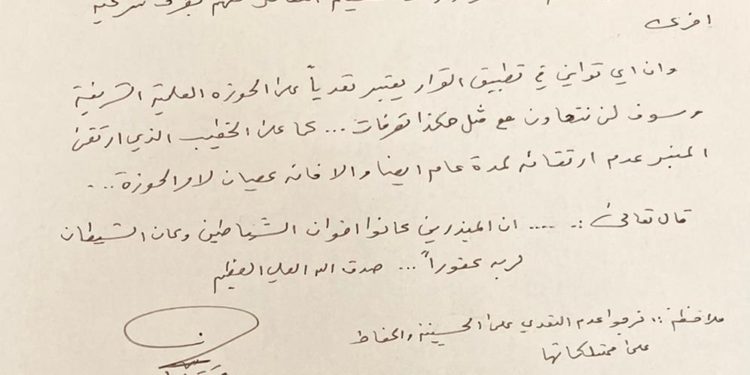 التعامل معهم بطرق شرعية
اخرى
وان اي تواني في تطبيق القرار يعتبر تعدياً على الحوزة العلمية الشريفة
وسوف لن نتهاون مع مثل هكذا تصرفات ... كما على الخطيب الذي ارتقى
المنبر عدم ارتقائه لمدة عام ايضا والا فانه عصيان لامر الحوزة ...
قال تعالى :: .... ان المبذرين كانوا اخوان الشياطين وكان الشيطان
لربه كفوراً ... صدق الله العلي العظيم
ملاحظة :: نرجوا عدم التعدي على الحسينية والحفاظ
على ممتلكاتها